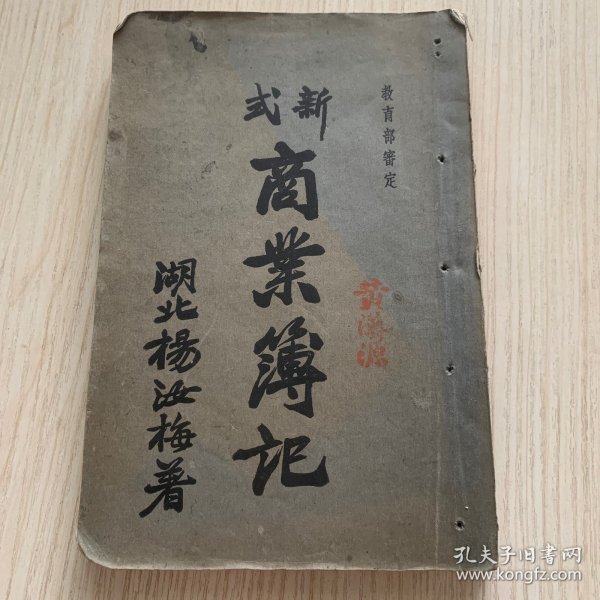 教育部審定
新式
商業簿記
湖北楊汝梅著
黄漢源
孔夫子旧书网
www.kongfz.com